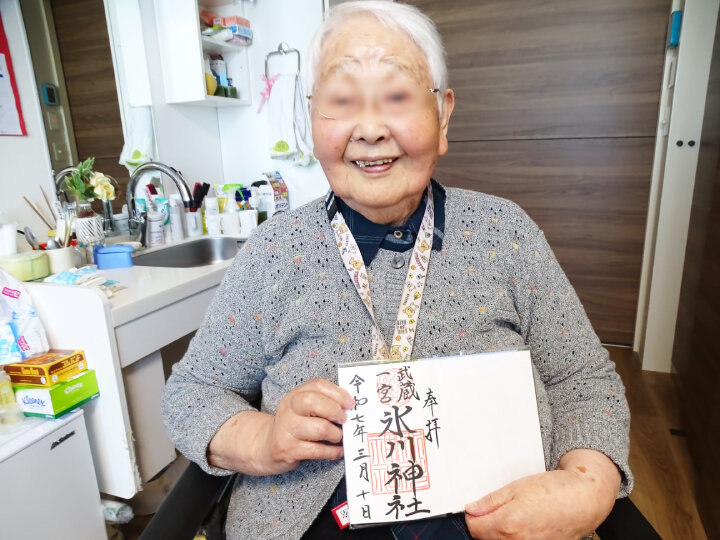 奉拝
武蔵
一宮
氷川神社
令和七年三月十日
Kleenex